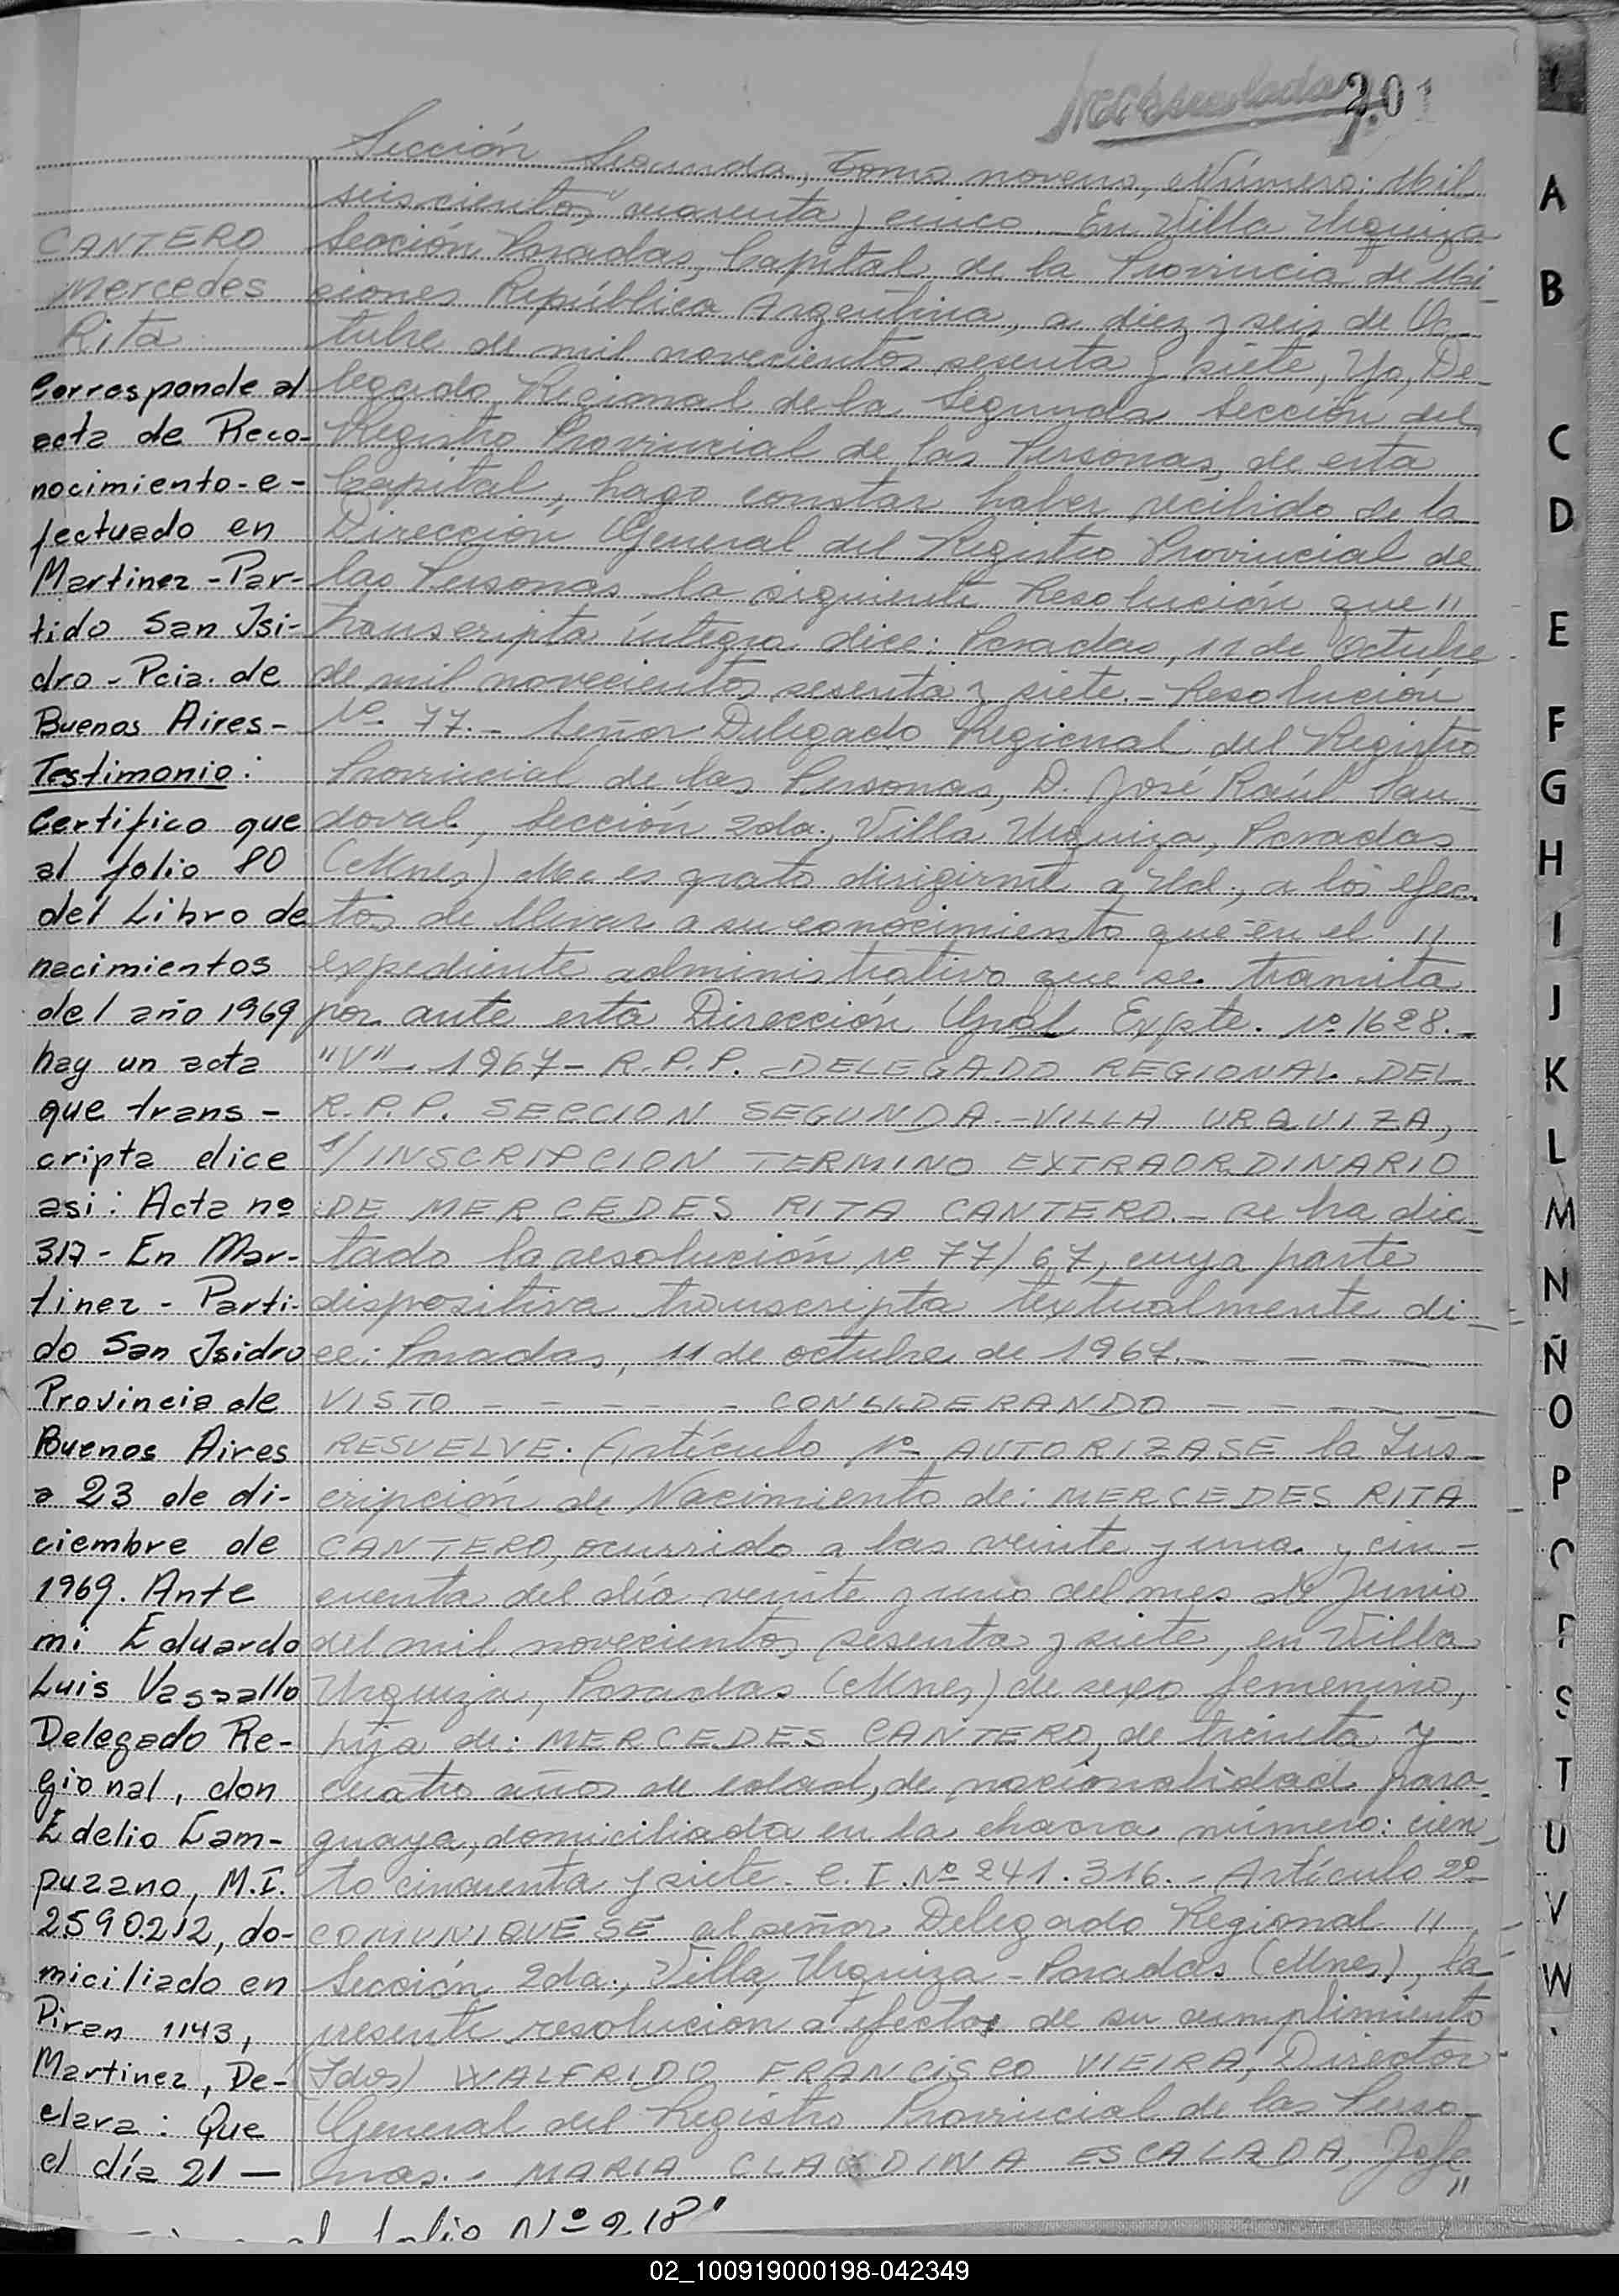 201
Sección Segunda, Tomo noveno, Número: Mil
seiscientos cuarenta y cinco. En Villa Urquiza
Sección Posadas, Capital de la Provincia de Mi-
ciones República Argentina, a diez y seis de Oc-
tubre de mil novecientos sesenta y siete, Yo, De-
legado Regional de la Segunda Sección del
Registro Provincial de las Personas, de esta
Capital, hago constar haber recibido de la
Dirección General del Registro Provincial de
las Personas la siguiente Resolución que "
transcripta íntegra dice: Posadas, 11 de Octubre
de mil novecientos sesenta y siete.- Resolución
Nº 77.- Señor Delegado Regional del Registro
Provincial de las Personas, D. José Raúl San-
doval, Sección 2da., Villa Urquiza, Posadas
(Mnes) Me es grato dirigirme a Ud., a los efec-
tos de llevar a su conocimiento que en el "
expediente administrativo que se tramita
por ante esta Dirección Gral Expte. Nº 1628.-
"V" - 1967 - R.P.P. DELEGADO REGIONAL DEL
R.P.P. SECCION SEGUNDA.- VILLA URQUIZA,
s/INSCRIPCION TERMINO EXTRAORDINARIO
DE MERCEDES RITA CANTERO.- se ha dic-
tado la resolución Nº 77/67, cuya parte
dispositiva transcripta textualmente di-
ce: Posadas, 11 de octubre de 1967.- - - - -
VISTO - - - - - CONSIDERANDO - - - - -
RESUELVE: Artículo 1º AUTORIZASE la Ins-
cripción de Nacimiento de: MERCEDES RITA
CANTERO, ocurrido a las veinte y una y cin-
cuenta del día veinte y uno del mes de Junio
del mil novecientos sesenta y siete, en Villa
Urquiza, Posadas (Mnes) de sexo femenino,
hija de: MERCEDES CANTERO, de treinta y
cuatro años de edad, de nacionalidad para-
guaya, domiciliada en la chacra número: cien-
to cincuenta y siete. C.I. Nº 241.316.- Artículo 2º
COMUNIQUESE al señor Delegado Regional "
Sección 2da., Villa Urquiza - Posadas (Mnes), la
presente resolución a efectos de su cumplimiento
(Fdos) WALFRIDO FRANCISCO VIEIRA, Director
General del Registro Provincial de las Perso-
nas.- MARIA CLAUDINA ESCALADA, Jefe
"
CANTERO
Mercedes
Rita
Corresponde al
acta de Reco-
nocimiento-e-
fectuado en
Martinez - Par-
tido San Isi-
dro - Pcia. de
Buenos Aires-
Testimonio:
Certifico que
al folio 80
del Libro de
nacimientos
del año 1969
hay un acta
que trans-
cripta dice
asi: Acta nº
317 - En Mar-
tinez - Parti-
do San Isidro
Provincia de
Buenos Aires
a 23 de di-
ciembre de
1969. Ante
mi Eduardo
Luis Vassallo
Delegado Re-
gional, don
Edelio Cam-
puzano, M.I.
2590212, do-
miciliado en
Piran 1143,
Martinez, De-
clara: Que
el día 21 —
al folio Nº 218
A
B
C
D
E
F
G
H
I
J
K
L
M
N
Ñ
O
P
S
T
U
V
W
02_100919000198-042349